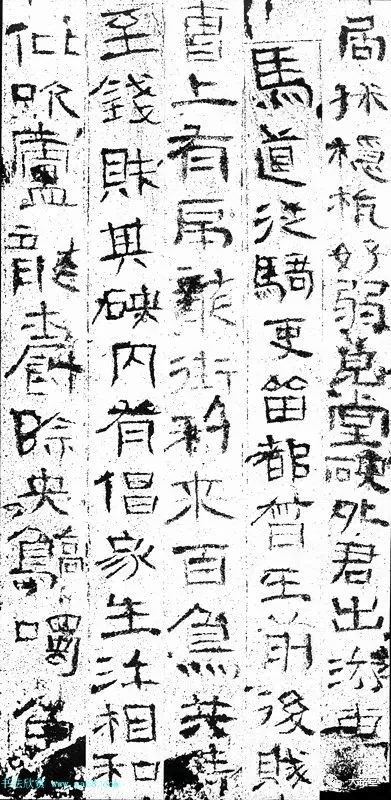 局抹檼杭好弱皃堂硖外君出游車
馬道從騎吏留都督在前後賊
曹上有虎龍銜利來百鳥共持
至錢財其硖内有倡家生汙相和
仳吹廬龍爵除央鶴噣魚